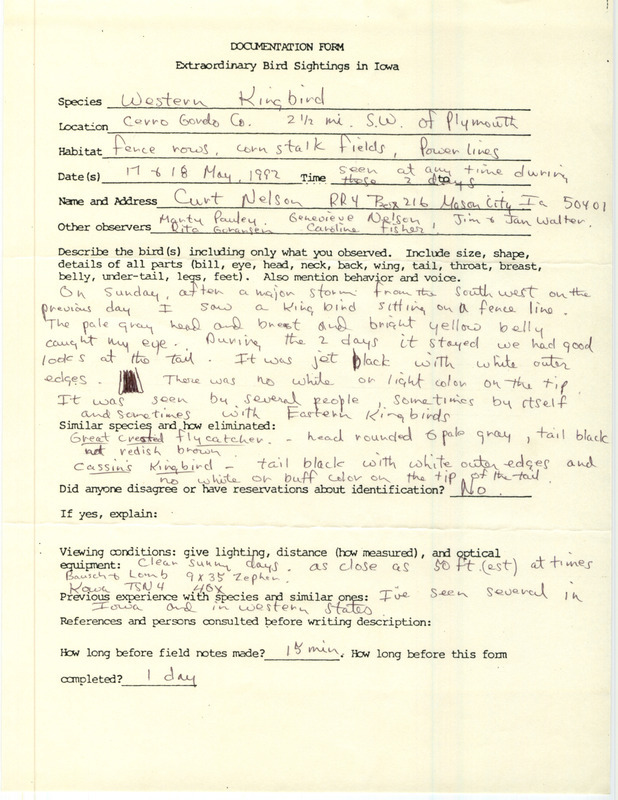 DOCUMENTATION FORM
Extraordinary Bird Sightings in Iowa
Species Western Kingbird
Location Cerro Gordo Co. 2 1/2 mi. S.W. of Plymouth
Habitat fence rows, corn stalk fields, Power lines
Date(s) 17 & 18 May, 1992 Time seen at any time during
these 2 days
Name and Address Curt Nelson RR4 Box 216 Mason City Ia 50401
Marty Pauley. Genevieve Nelson Jim & Jan Walter.
Other observers Rita Goransen Caroline Fisher!
Describe the bird(s) including only what you observed. Include size, shape,
details of all parts (bill, eye, head, neck, back, wing, tail, throat, breast,
belly, under-tail, legs, feet). Also mention behavior and voice.
On Sunday, after a major storm from the south west on the
previous day I saw a king bird sitting on a fence line.
The pale gray head and breast and bright yellow belly
caught my eye. During the 2 days it stayed we had good
looks at the tail. It was jet black with white outer
edges. There was no white or light color on the tip
It was seen by several people, sometimes by itself
and sometimes with Eastern Kingbirds
Similar species and how eliminated:
Great crested flycatcher. - head rounded & pale gray, tail black
not redish brown.
Cassin's Kingbird - tail black with white outer edges and
no white or buff color on the tip of the tail.
Did anyone disagree or have reservations about identification? No.
If yes, explain:
Viewing conditions: give lighting, distance (how measured), and optical
equipment: Clear sunny days. as close as 50 ft. (est) at times
Bausch & Lomb 9 x 35 Zephyr.
Kowa TSN 4 40X
Previous experience with species and similar ones: I've seen several in
Iowa and in western states
References and persons consulted before writing description:
How long before field notes made? 15 min. How long before this form
completed? 1 day